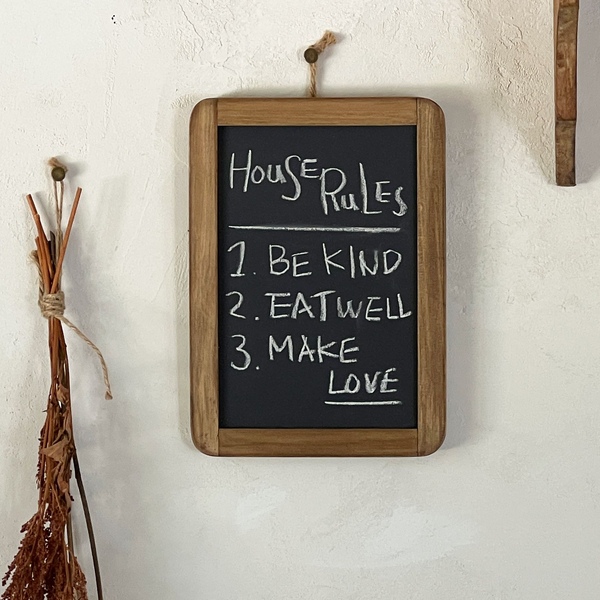 HOUSE RULES
1. BE KIND
2. EAT WELL
3. MAKE
LOVE